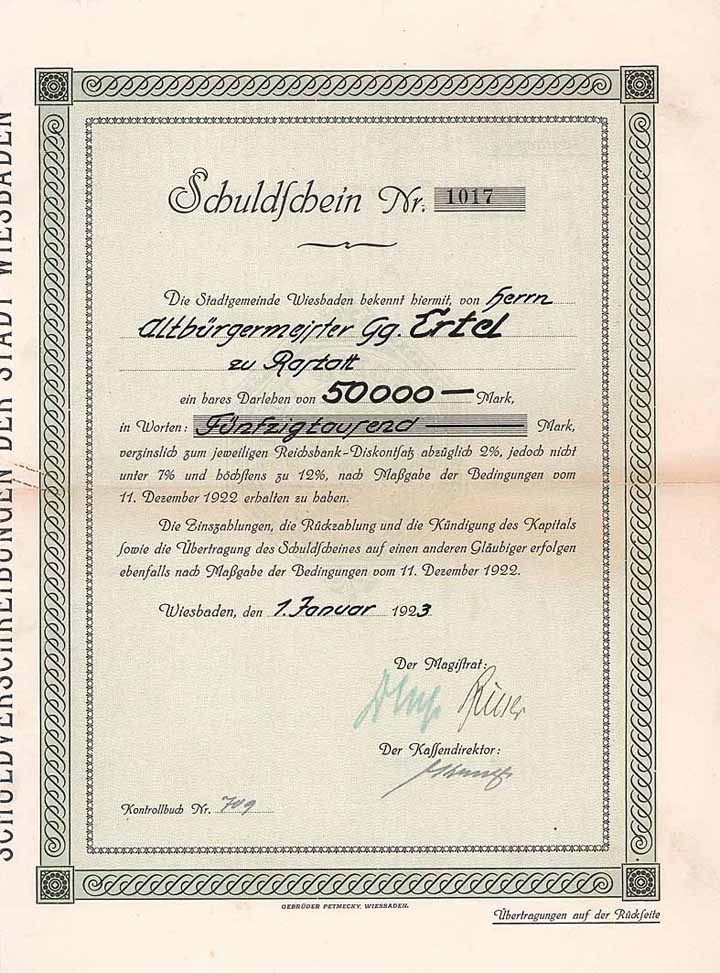 SCHULDVERSCHREIBUNGEN DER STADT WIESBADEN
Schuldſchein Nr. 1017
Die Stadtgemeinde Wiesbaden bekennt hiermit, von Herrn
Altbürgermeiſter Gg. Ertel
zu Raſtatt
ein bares Darlehen von 50000— Mark,
in Worten: Fünfzigtauſend — Mark,
verzinslich zum jeweiligen Reichsbank-Diskontſatz abzüglich 2%, jedoch nicht
unter 7% und höchſtens zu 12%, nach Maßgabe der Bedingungen vom
11. Dezember 1922 erhalten zu haben.
Die Zinszahlungen, die Rückzahlung und die Kündigung des Kapitals
ſowie die Übertragung des Schuldſcheines auf einen anderen Gläubiger erfolgen
ebenfalls nach Maßgabe der Bedingungen vom 11. Dezember 1922.
Wiesbaden, den 1. Januar 1923
Der Magiſtrat:
Der Kaſſendirektor:
Kontrollbuch Nr. 709
GEBRÜDER PETMECKY, WIESBADEN.
Übertragungen auf der Rückſeite